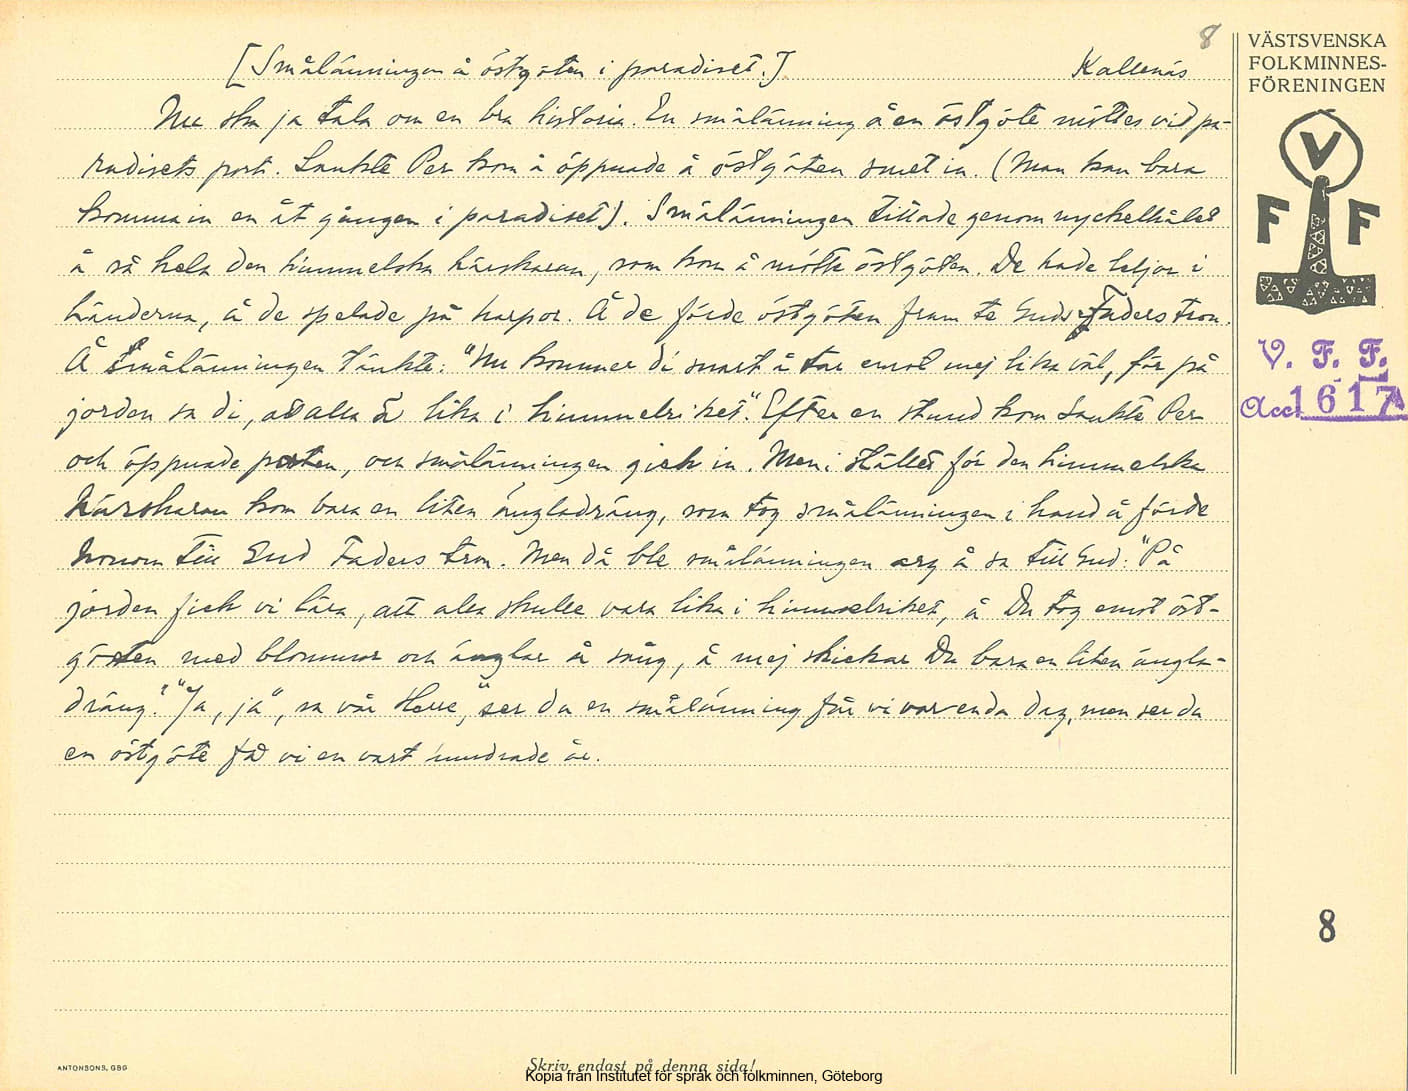 8
[Smålänningen å östgöten i paradiset.] Kallenäs
Nu ska ja tala om en bra historia. En smålänning å en östgöte möttes vid pa-
radisets port. Sankte Per kom å öppnade å östgöten smet in. (Man kan bara
komma in en åt gången i paradiset). Smålänningen tittade genom nyckelhålet
å så hela den himmelska härskaran, som kom å mötte östgöten. De hade liljor i
händerna, å de spelade på harpor. Å de förde östgöten fram te Guds Faders tron.
Å smålänningen tänkte: "Nu kommer di snart å tar emot mej lika väl, för på
jorden sa di, att alla ä lika i himmelriket." Efter en stund kom Sankte Per
och öppnade porten, och smålänningen gick in. Men i stället för den himmelska
härskaran kom bara en liten ängladräng, som tog smålänningen i hand å förde
honom till Gud Faders tron. Men då ble smålänningen arg å sa till Gud: "På
jorden fick vi lära, att alla skulle vara lika i himmelriket, å Du tog emot öst-
göten med blommor och änglar å sång, å mej skickar Du bara en liten ängla-
dräng." "Ja, ja", sa vår Herre, "ser du en smålänning får vi var enda dag, men ser du
en östgöte får vi en vart hundrade år.
VÄSTSVENSKA
FOLKMINNES-
FÖRENINGEN
V
F F
V. F. F.
Acc. 1617
8
ANTONSONS, GBG
Skriv endast på denna sida!
Kopia från Institutet för språk och folkminnen, Göteborg